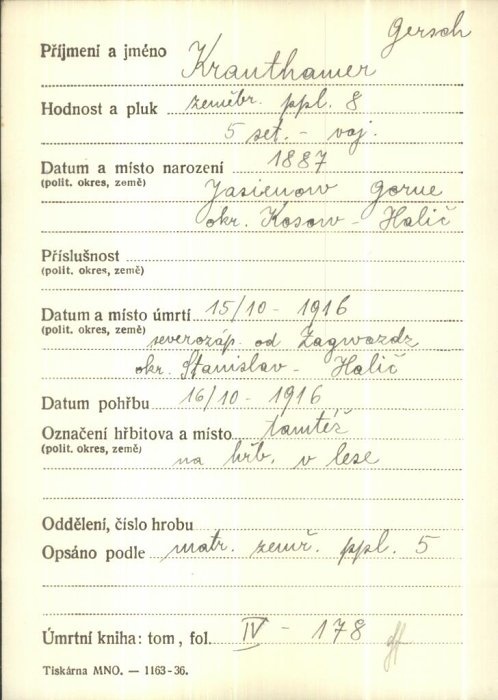 Gersch
Příjmení a jméno Krauthamer
Hodnost a pluk zeměbr. ppl. 8
5 set. - voj.
Datum a místo narození 1887
(polit. okres, země) Jasienow Gorne
okr. Kosow - Halič
Příslušnost
(polit. okres, země)
Datum a místo úmrtí 15/10 - 1916
(polit. okres, země) severozáp. od Zagwozdz
okr. Stanislav - Halič
Datum pohřbu 16/10 - 1916
Označení hřbitova a místo tamtéž
(polit. okres, země) na hřb. v lese
Oddělení, číslo hrobu
Opsáno podle matr. zemř. ppl. 5
Úmrtní kniha: tom, fol. IV - 178
Tiskárna MNO. — 1163-36.